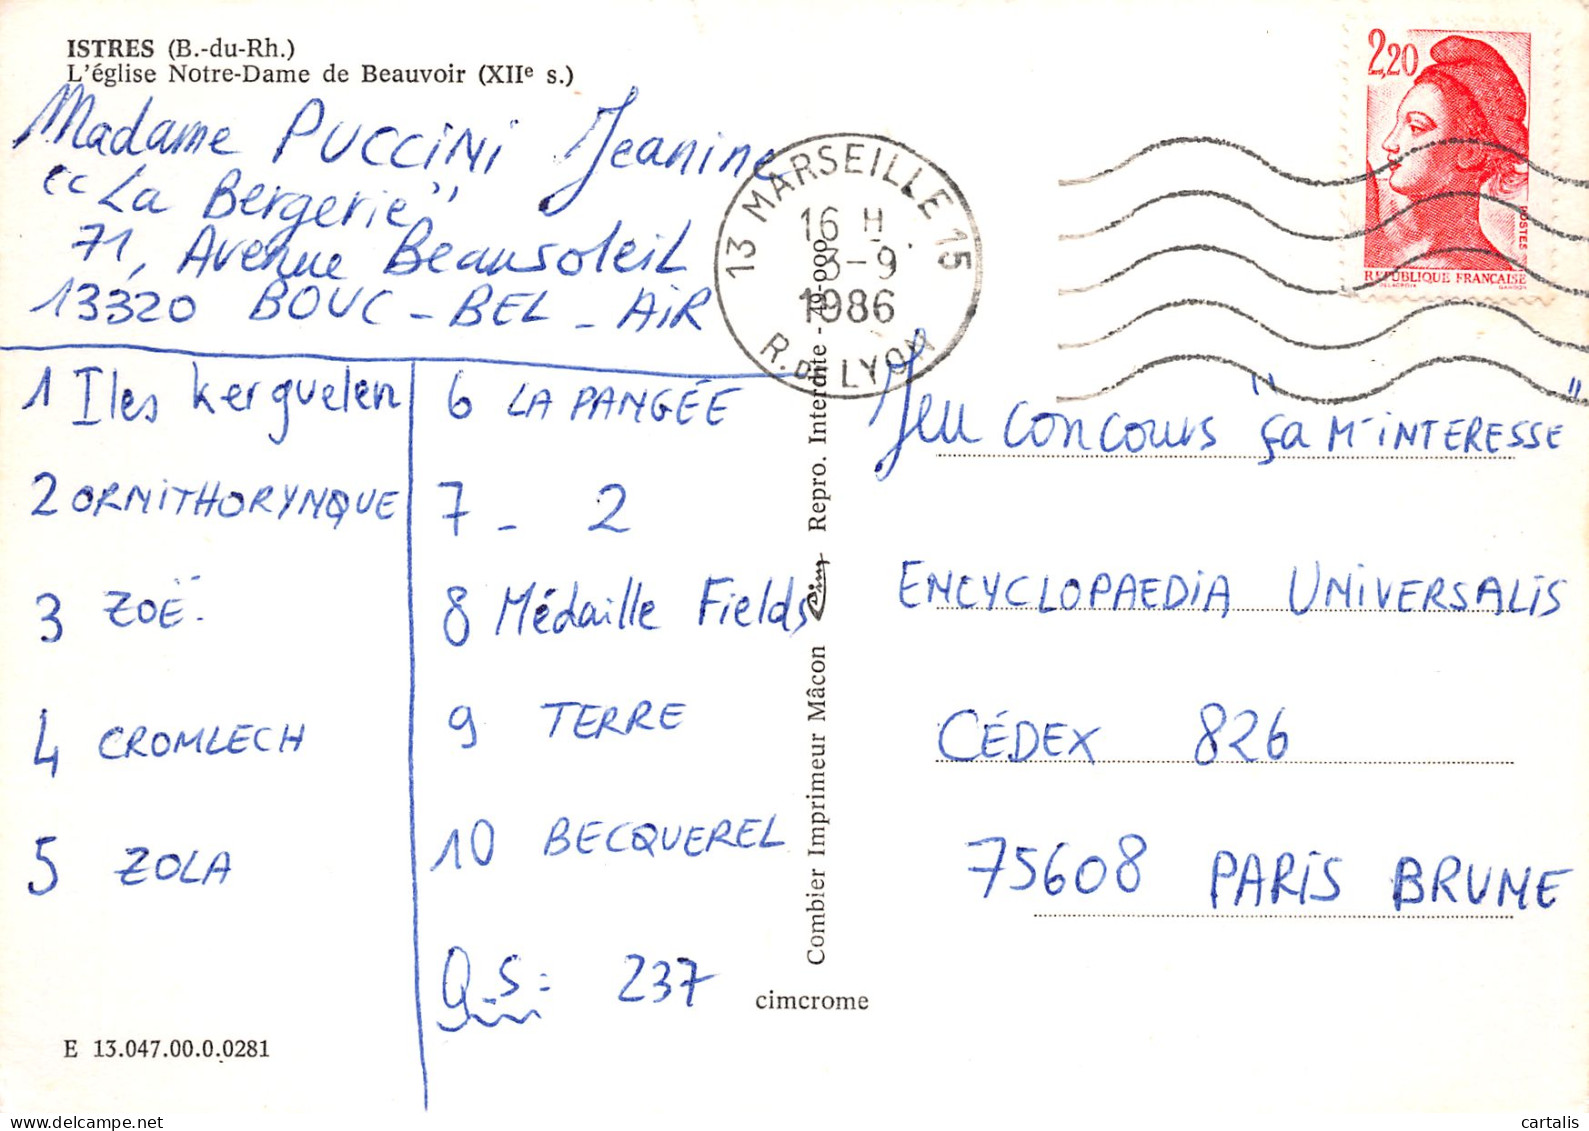 ISTRES (B.-du-Rh.)
L'église Notre-Dame de Beauvoir (XIIe s.)
Madame PUCCINI Jeanine
"La Bergerie"
71, Avenue Beausoleil
13320 BOUC - BEL - AIR
1 Iles kerguelen
2 ORNITHORYNQUE
3 ZOË.
4 CROMLECH
5 ZOLA
6 LA PANGÉE
7 - 2
8 Médaille Fields
9 TERRE
10 BECQUEREL
Q.S: 237
E 13.047.00.0.0281
Combier Imprimeur Mâcon Cim Repro. Interdite -
cimcrome
13 MARSEILLE 15
16 H
8-9
1986
R. DE LYON
2,20
POSTES
REPUBLIQUE FRANCAISE
DELACROIX GANDON
Jeu concours "ça M'INTERESSE"
ENCYCLOPAEDIA UNIVERSALIS
CÉDEX 826
75608 PARIS BRUNE
delcampe.net
cartalis